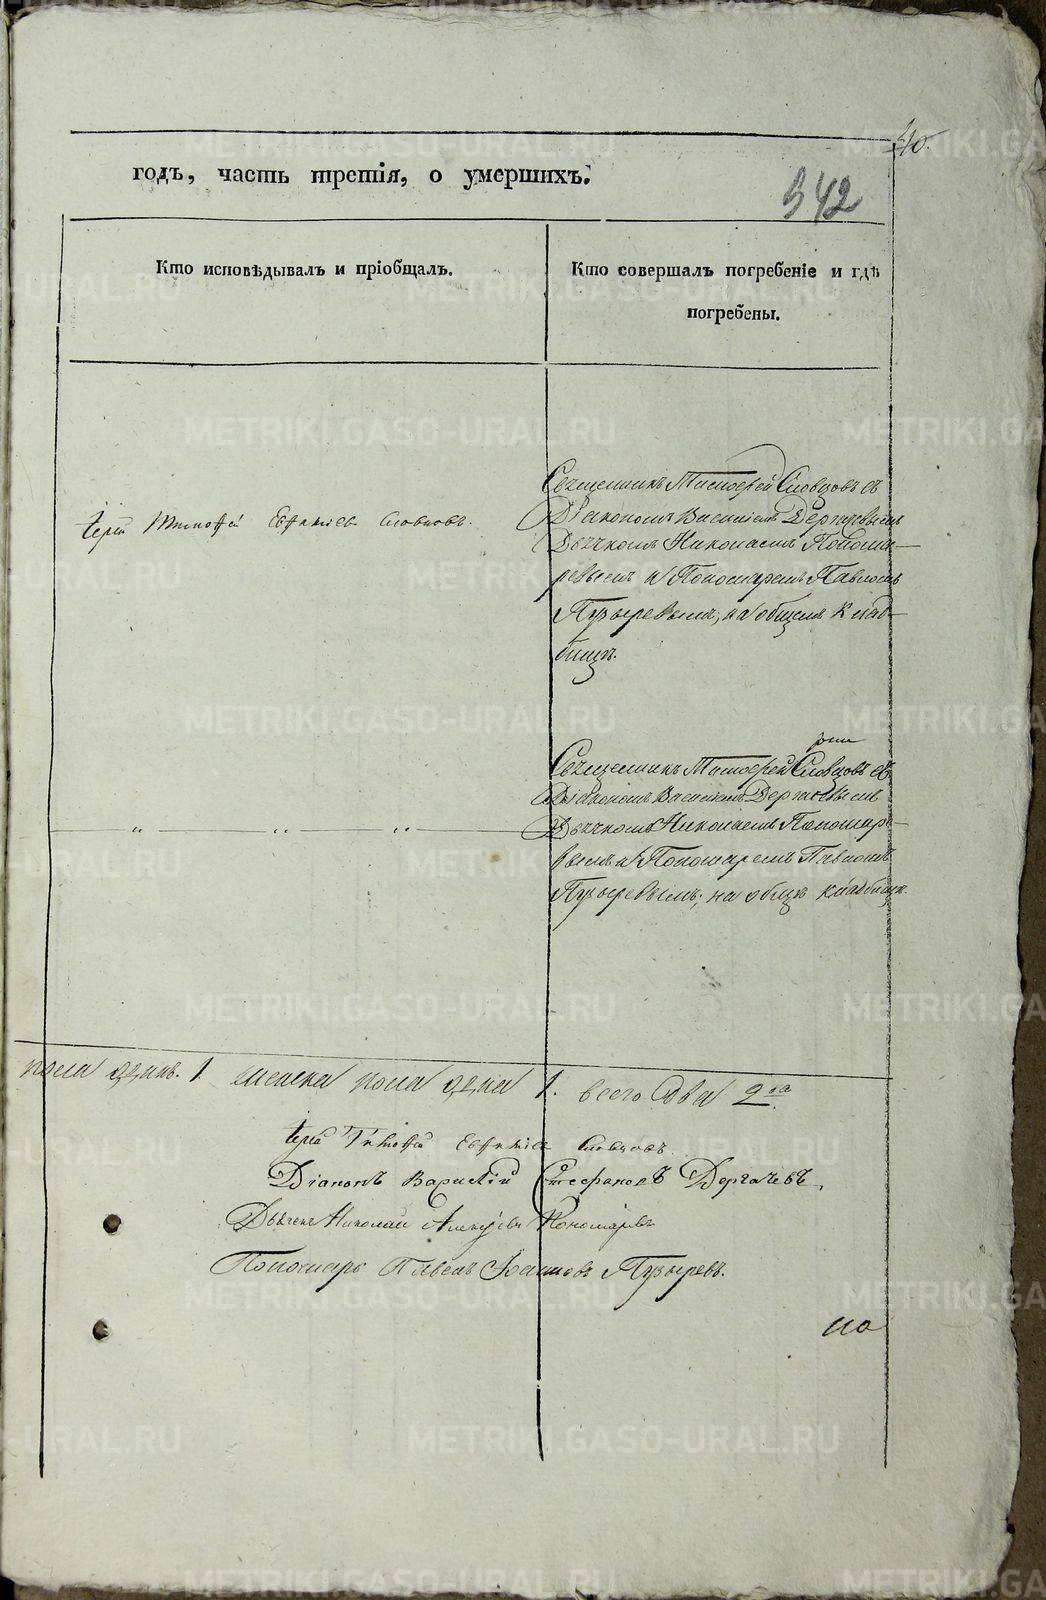 40.
годъ, часть третія, о умершихъ.
342
Кто исповѣдывалъ и пріобщалъ.
Кто совершалъ погребеніе и гдѣ
погребены.
Іерей Тимоѳей Евѳиміевъ Словцовъ.
Священникъ Тимоѳей Словцовъ съ
Діакономъ Василіемъ Дергачевымъ
Дьячкомъ Николаемъ Понома-
ревымъ и Пономаремъ Павломъ
Пузыревымъ, на общемъ клад-
бищѣ.
Священникъ Тимоѳей Словцовъ съ
Діакономъ Василіемъ Дергачевымъ
" " "
Дьячкомъ Николаемъ Пономаре-
вымъ и Пономаремъ Павломъ
Пузыревымъ, на общ. кладбищѣ.
пола одинъ. 1. женска пола одна 1. всего два 2ва
Іерей Тимоѳей Евѳиміевъ Словцовъ.
Діаконъ Василій Стефановъ Дергачевъ,
Дьячекъ Николай Алексѣевъ Пономаревъ
Пономарь Павелъ Іоанновъ Пузыревъ.
по
METRIKI.GASO-URAL.RU